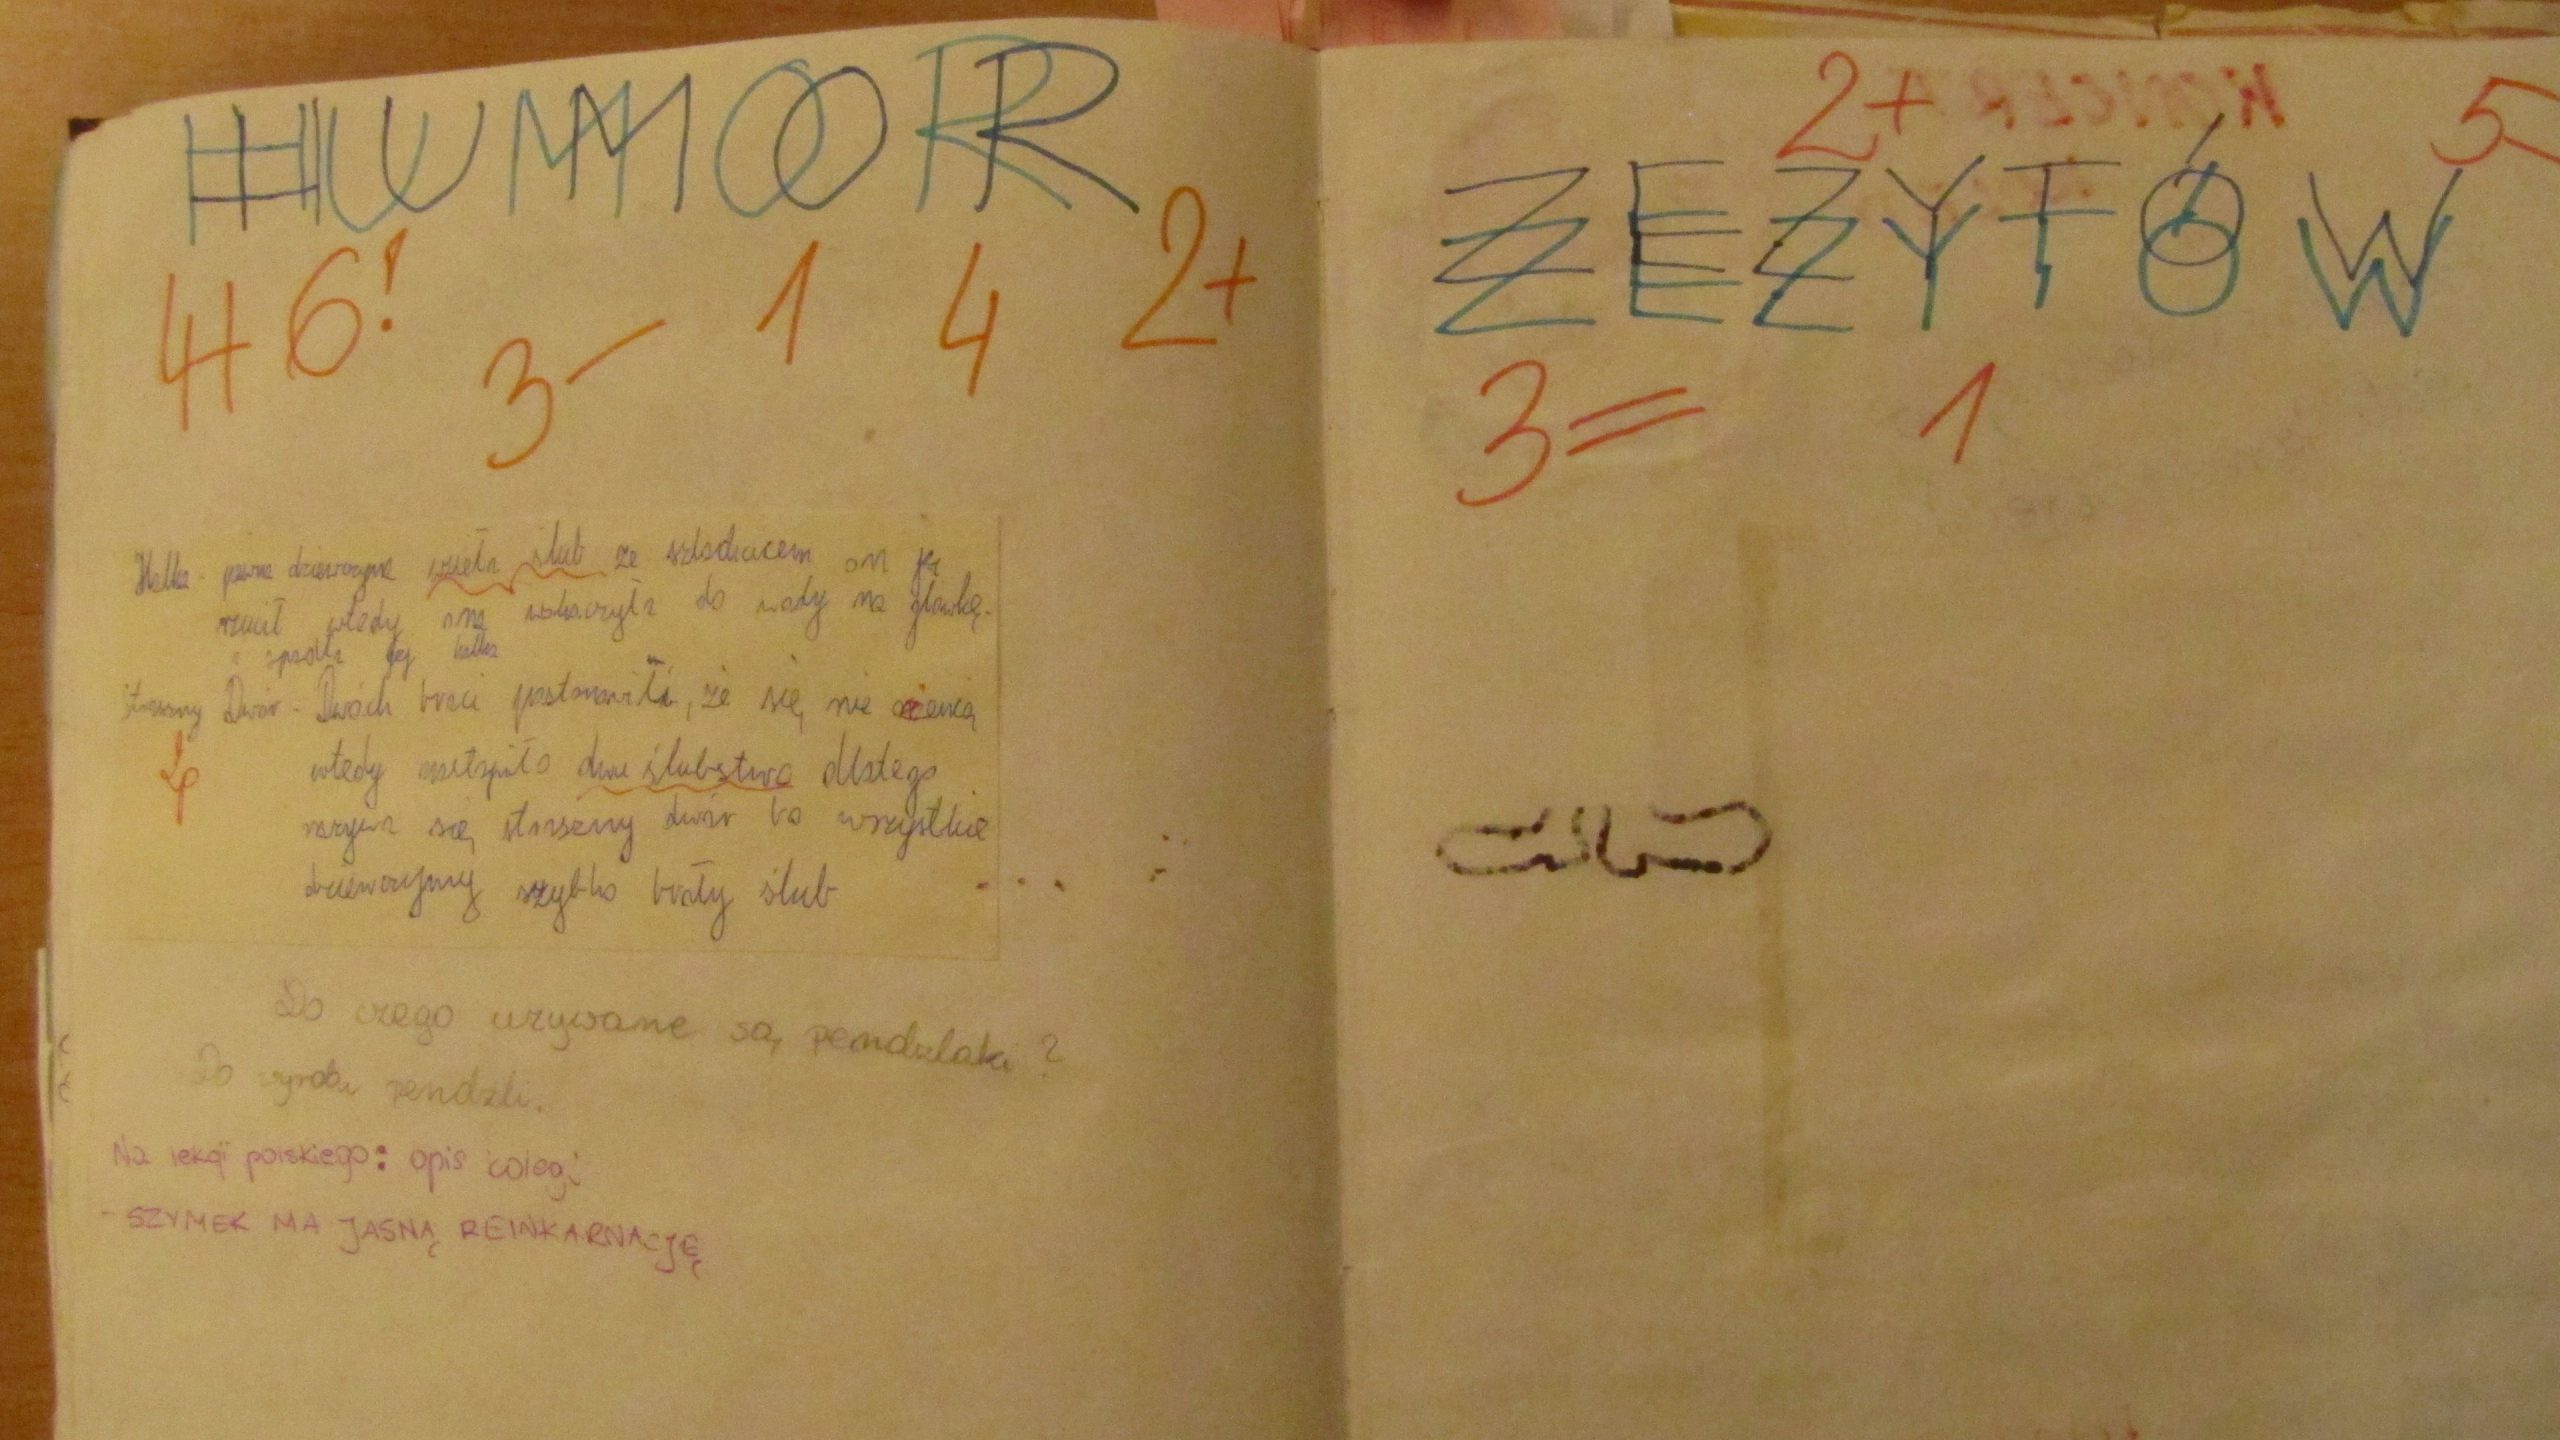 HUMOR
4+ 6! 3- 1 4 2+
Halka - pewna dziewczyna wzieła ślub ze szlachcicem on ją
rzucił wtedy ona wskoczyła do wody na główkę.
i spadła jej halka
straszny Dwór - Dwóch braci postanowiło, że się nie ożenią
wtedy nastąpiło dwu ślubstwo dlatego
nazywa się straszny dwór bo wszystkie
dziewczyny szybko brały ślub
Do czego używane są pendzlaki?
Do wyrobu pendzli.
Na lekcji polskiego: opis kolegi
- SZYMEK MA JASNĄ REINKARNACJĘ
2+ 5-
ZEZYTÓW
3= 1